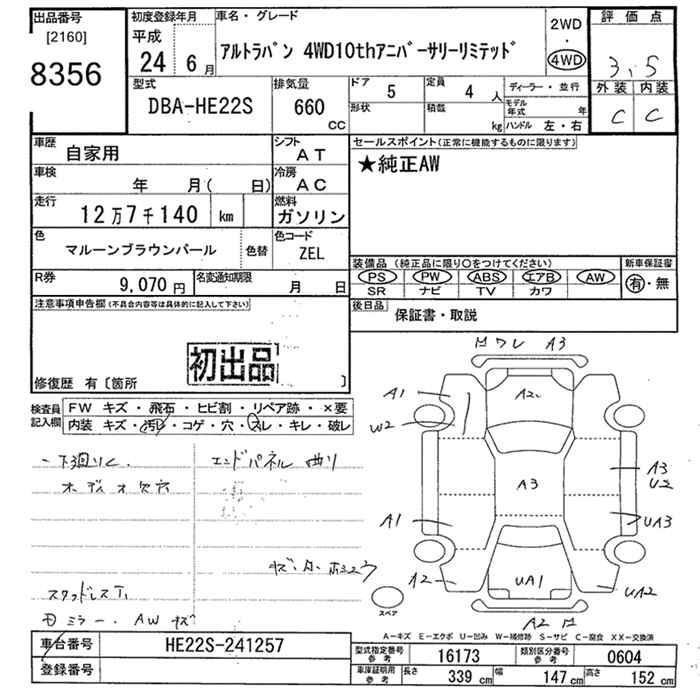 出品番号
[2160]
8356
初度登録年月
平成
24 6月
車名・グレード
アルトラパン 4WD10thアニバーサリーリミテッド
2WD
・
4WD
評価点
3.5
外装 内装
C C
型式
DBA-HE22S
排気量
660
CC
ドア 5
定員 4 人
形状
積載 kg
ディーラー・並行
モデル年式 年
ハンドル 左・右
車歴
自家用
シフト
AT
車検
年 月( 日)
冷房
AC
走行
12万7千140 km
燃料
ガソリン
色
マルーンブラウンパール
色替
色コード
ZEL
R券
9,070円
名変通知期限
月 日
セールスポイント(正常に機能するものに限ります)
★純正AW
装備品 (純正品に限り○をつけてください)
PS PW ABS エアB AW
SR ナビ TV カワ
新車保証書
有・無
後日品
保証書・取説
注意事項申告欄(不具合内容等は具体的に記入して下さい)
初出品
修復歴 有〔箇所 〕
検査員
記入欄
FW キズ・飛石・ヒビ割・リペア跡・×要
内装 キズ・汚レ・コゲ・穴・スレ・キレ・破レ
エンドパネル 曲り
スタッドレス
ミラー. AW キズ
ワレ A3
A1
A2
W2
A3
A3
U2
A1
UA3
A2
UA1
UA2
スペア
A2
A-キズ E-エクボ U-凹み W-補修跡 S-サビ C-腐食 XX-交換済
車台番号
HE22S-241257
登録番号
型式指定番号
参考
16173
類別区分番号
参考
0604
車庫証明用
参考
長さ 339 cm 幅 147 cm 高さ 152 cm